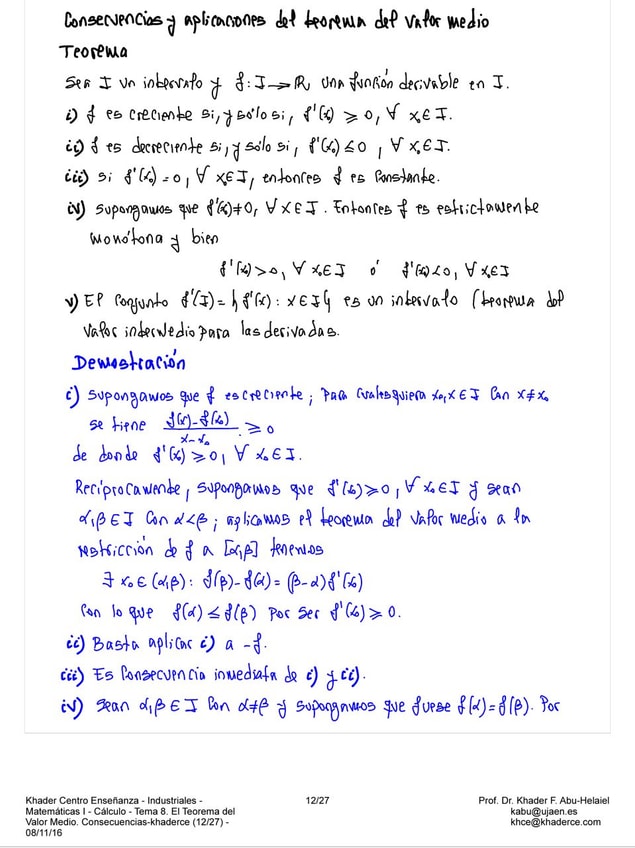 Consecuencias y aplicaciones del teorema del valor medio
Teorema
Sea I un intervalo y f: I → ℝ, una función derivable en I.
i) f es creciente si, y sólo si, f'(x₀) ≥ 0, ∀ x₀ ∈ I.
ii) f es decreciente si, y sólo si, f'(x₀) ≤ 0, ∀ x₀ ∈ I.
iii) si f'(x₀) = 0, ∀ x₀ ∈ I, entonces f es constante.
iv) supongamos que f'(x) ≠ 0, ∀ x ∈ I. Entonces f es estrictamente
monótona y bien
f'(x₀) > 0, ∀ x₀ ∈ I ó f'(x₀) < 0, ∀ x₀ ∈ I
v) El conjunto f'(I) = { f'(x) : x ∈ I } es un intervalo (teorema del
valor intermedio para las derivadas.
Demostración
i) supongamos que f es creciente; para cualesquiera x₀, x ∈ I con x ≠ x₀
se tiene (f(x) - f(x₀))/(x - x₀) ≥ 0
de donde f'(x₀) ≥ 0, ∀ x₀ ∈ I.
Recíprocamente, supongamos que f'(x₀) ≥ 0, ∀ x₀ ∈ I y sean
α, β ∈ I con α < β; aplicamos el teorema del valor medio a la
restricción de f a [α, β] tenemos
∃ x₀ ∈ (α, β) : f(β) - f(α) = (β - α) f'(x₀)
con lo que f(α) ≤ f(β) por ser f'(x₀) ≥ 0.
ii) Basta aplicar i) a -f.
iii) Es consecuencia inmediata de i) y ii).
iv) sean α, β ∈ I con α ≠ β y supongamos que fuese f(α) = f(β). Por
Khader Centro Enseñanza - Industriales -
Matemáticas I - Cálculo - Tema 8. El Teorema del
Valor Medio. Consecuencias-khaderce (12/27) -
08/11/16
12/27
Prof. Dr. Khader F. Abu-Helaiel
kabu@ujaen.es
khce@khaderce.com